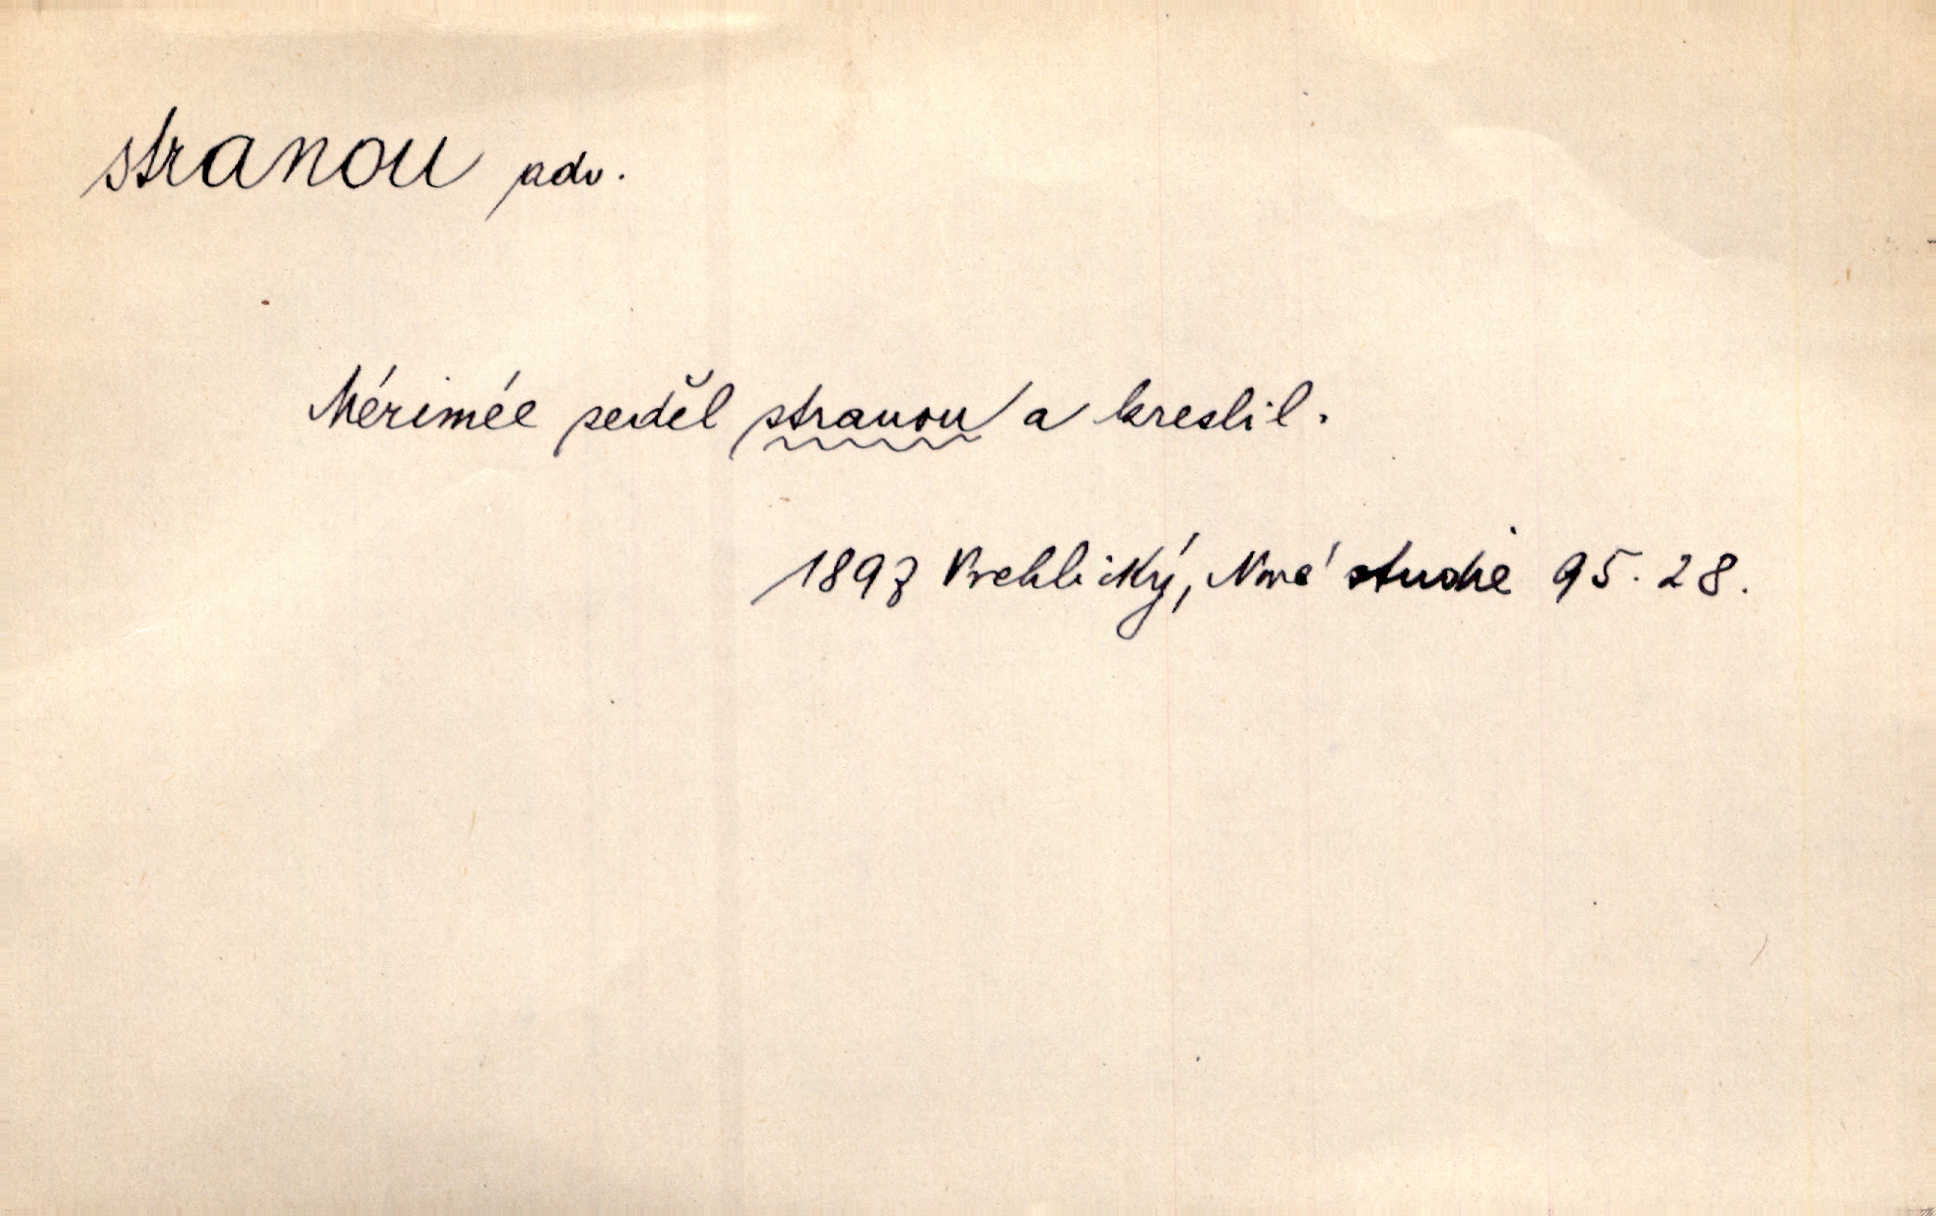 stranou adv.
Mérimée seděl stranou a kreslil.
1897 Vrchlický, Nové studie 95. 28.